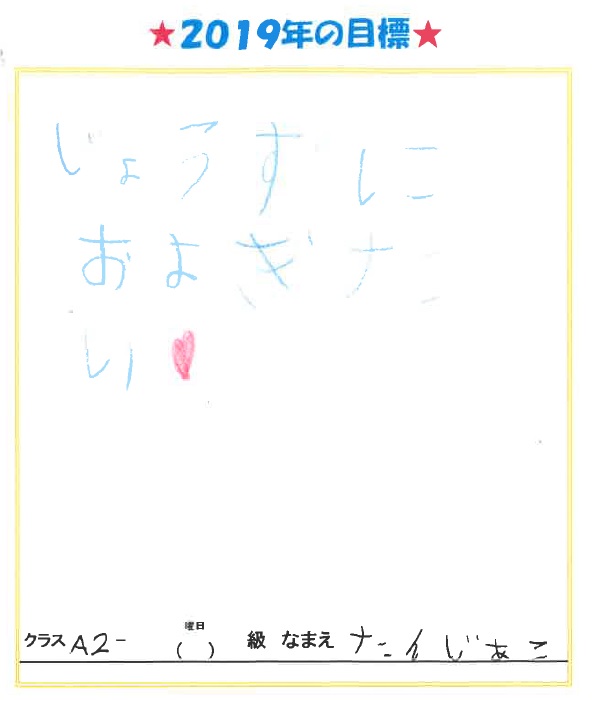 ★2019年の目標★
じょうすに
およぎた
い♥
クラスA2- 曜日( ) 級 なまえ たんじあこ